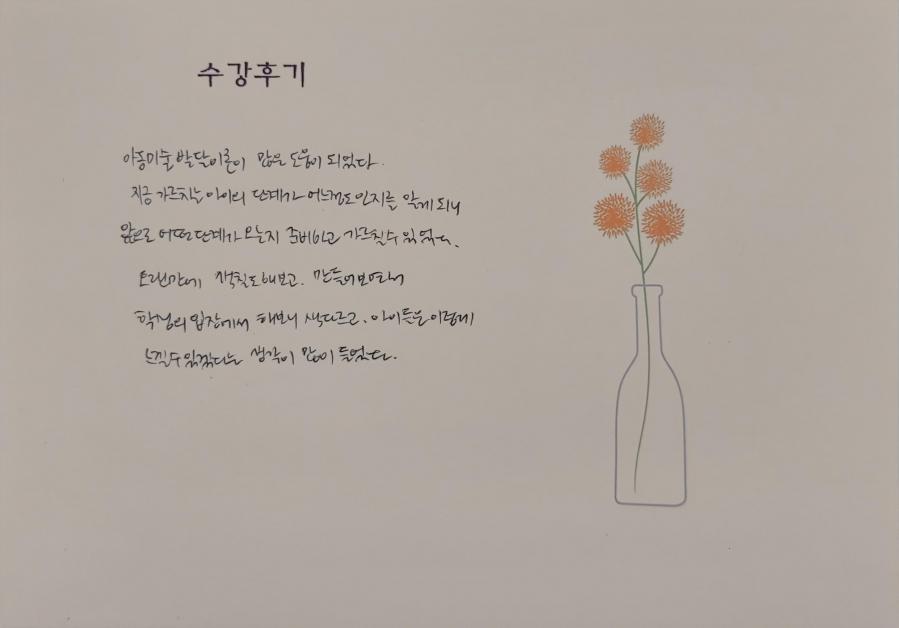 수강후기
아동미술 발달이론이 많은 도움이 되었다.
지금 가르치는 아이의 단계가 어느정도인지를 알게 되니
앞으로 어떤 단계가 오는지 준비하고 가르칠수 있었다.
오랜만에 색칠도 해보고, 만들어보면서
학생의 입장에서 해보니 색다르고, 아이들은 이렇게
느낄수 있겠다는 생각이 많이 들었다.